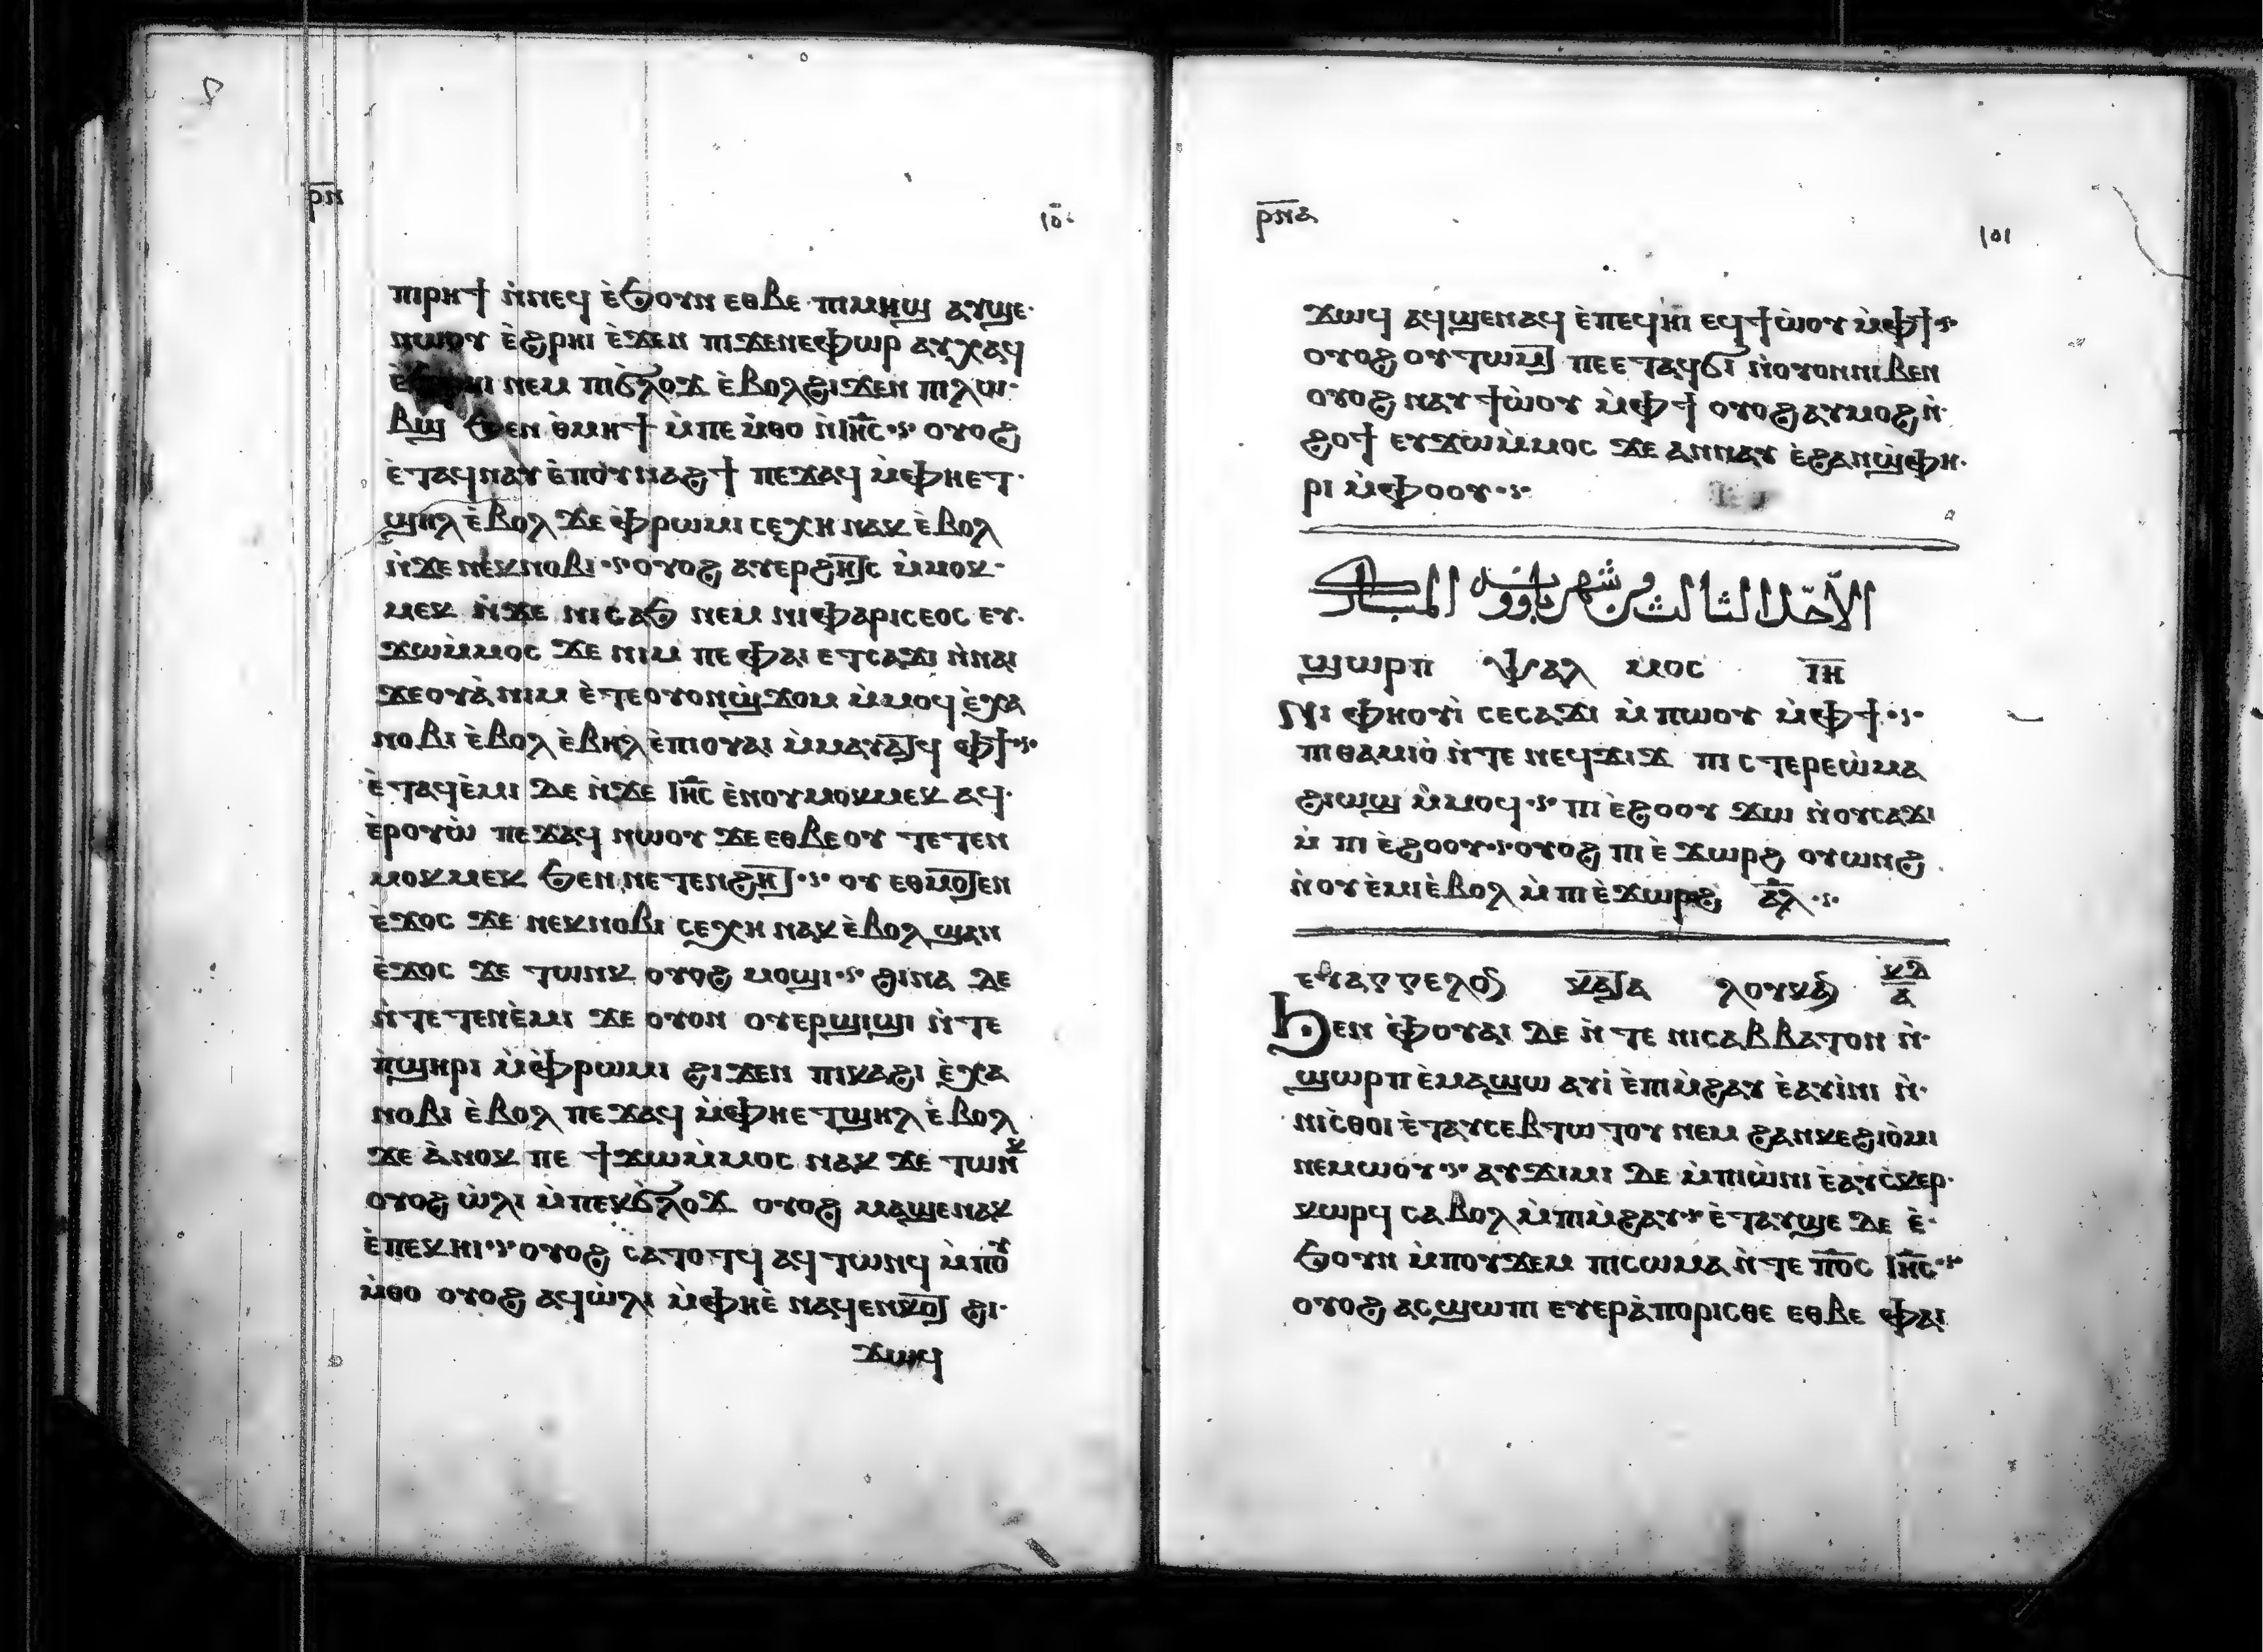 ⲣ̅ⲛ̅
10·
ⲡⲓⲣⲏϯ ⲛ̀ⲛⲉϥ ⲉ̀ϧⲟⲩⲛ ⲉⲑⲃⲉ ⲡⲓⲙⲏϣ ⲁⲩϣⲉ·
ⲛⲱⲟⲩ ⲉ̀ϩⲣⲏⲓ ⲉ̀ϫⲉⲛ ⲡⲓϫⲉⲛⲉⲫⲱⲣ ⲁⲩⲭⲁϥ
ⲛⲉⲙ ⲡⲓϭⲗⲟϫ ⲉ̀ⲃⲟⲗϩⲓϫⲉⲛ ⲡⲓⲗⲱ·
ⲃϣ ϧⲉⲛ ⲑⲙⲏϯ ⲙ̀ⲡⲉ ⲙ̀ⲑⲟ ⲛ̀ⲓⲏ̅ⲥ̅ ⲟⲩⲟϩ
ⲉ̀ⲧⲁϥⲛⲁⲩ ⲉ̀ⲡⲟⲩⲛⲁϩϯ ⲡⲉϫⲁϥ ⲙ̀ⲫⲏⲉⲧ·
ϣⲏⲗ ⲉ̀ⲃⲟⲗ ϫⲉ ⲫ̀ⲣⲱⲙⲓ ⲥⲉⲭⲏ ⲛⲁⲕ ⲉ̀ⲃⲟⲗ
ⲛ̀ϫⲉ ⲛⲉⲕⲛⲟⲃⲓ ⲟⲩⲟϩ ⲁⲩⲉⲣϩⲏⲧ̅ⲥ ⲙ̀ⲙⲟⲕ·
ⲙⲉⲕ ⲛ̀ϫⲉ ⲛⲓⲥⲁϧ ⲛⲉⲙ ⲛⲓⲫⲁⲣⲓⲥⲉⲟⲥ ⲉⲩ·
ϫⲱⲙ̀ⲙⲟⲥ ϫⲉ ⲛⲓⲙ ⲡⲉ ⲫⲁⲓ ⲉⲧⲥⲁϫⲓ ⲛ̀ⲛⲁⲓ
ϫⲉⲟⲩⲁ̀ ⲛⲓⲙ ⲉ̀ⲧⲉⲟⲩⲟⲛϣ̀ϫⲟⲙ ⲙ̀ⲙⲟϥ ⲉ̀ⲭⲁ
ⲛⲟⲃⲓ ⲉ̀ⲃⲟⲗ ⲉ̀ⲃⲏⲗ ⲉ̀ⲡⲓⲟⲩⲁⲓ ⲙ̀ⲙⲁⲩⲁⲧ̅ϥ ⲫϯ
ⲉ̀ⲧⲁϥⲉ̀ⲙⲓ ⲇⲉ ⲛ̀ϫⲉ ⲓⲏ̅ⲥ̅ ⲉ̀ⲛⲟⲩⲙⲟⲕⲙⲉⲕ ⲁϥ·
ⲉ̀ⲣⲟⲩⲱ̀ ⲡⲉϫⲁϥ ⲛⲱⲟⲩ ϫⲉ ⲉⲑⲃⲉⲟⲩ ⲧⲉⲧⲉⲛ
ⲙⲟⲕⲙⲉⲕ ϧⲉⲛ ⲛⲉⲧⲉⲛϩⲏⲧ̅ ⲟⲩ ⲉⲑⲙⲟⲧ̅ⲉⲛ
ⲉ̀ϫⲟⲥ ϫⲉ ⲛⲉⲕⲛⲟⲃⲓ ⲥⲉⲭⲏ ⲛⲁⲕ ⲉ̀ⲃⲟⲗ ϣⲁⲛ
ⲉ̀ϫⲟⲥ ϫⲉ ⲧⲱⲛⲕ ⲟⲩⲟϩ ⲙⲟϣⲓ ϩⲓⲛⲁ ⲇⲉ
ⲛ̀ⲧⲉⲧⲉⲛⲉ̀ⲙⲓ ϫⲉ ⲟⲩⲟⲛ ⲟⲩⲉⲣϣⲓϣⲓ ⲛ̀ⲧⲉ
ⲡ̀ϣⲏⲣⲓ ⲙ̀ⲫ̀ⲣⲱⲙⲓ ϩⲓϫⲉⲛ ⲡⲓⲕⲁϩⲓ ⲉ̀ⲭⲁ
ⲛⲟⲃⲓ ⲉ̀ⲃⲟⲗ ⲡⲉϫⲁϥ ⲙ̀ⲫⲏⲉⲧϣⲏⲗ ⲉ̀ⲃⲟⲗ
ϫⲉ ⲁ̀ⲛⲟⲕ ⲡⲉ ϯϫⲱⲙ̀ⲙⲟⲥ ⲛⲁⲕ ϫⲉ ⲧⲱⲛⲕ
ⲟⲩⲟϩ ⲱ̀ⲗⲓ ⲙ̀ⲡⲉⲕϭⲗⲟϫ ⲟⲩⲟϩ ⲙⲁϣⲉⲛⲁⲕ
ⲉ̀ⲡⲉⲕⲏⲓ ⲟⲩⲟϩ ⲥⲁⲧⲟⲧϥ ⲁϥⲧⲱⲛϥ ⲙ̀ⲡⲟⲩ
ⲙ̀ⲑⲟ ⲟⲩⲟϩ ⲁϥⲱ̀ⲗⲓ ⲙ̀ⲫⲏⲉ̀ ⲛⲁϥⲉⲛⲕⲟⲧ̅ ϩⲓ·
ϫⲱϥ
ⲣ̅ⲛ̅ⲁ
101
ϫⲱϥ ⲁϥϣⲉⲛⲁϥ ⲉ̀ⲡⲉϥⲏⲓ ⲉϥϯⲱ̀ⲟⲩ ⲙ̀ⲫϯ
ⲟⲩⲟϩ ⲟⲩⲧⲱⲙ̅ⲧ̅ ⲡⲉⲉⲧⲁϥϭⲓ ⲛ̀ⲟⲩⲟⲛⲛⲓⲃⲉⲛ
ⲟⲩⲟϩ ⲛⲁⲩϯⲱ̀ⲟⲩ ⲙ̀ⲫϯ ⲟⲩⲟϩ ⲁⲩⲙⲟϩ ⲛ̀·
ϩⲟϯ ⲉⲩϫⲱⲙ̀ⲙⲟⲥ ϫⲉ ⲁⲛⲛⲁⲩ ⲉ̀ϩⲁⲛϣ̀ⲫⲏ·
ⲣⲓ ⲙ̀ⲫⲟⲟⲩ
الاحد الثالث من شهر بابه المبارك
ϣⲱⲣⲡ ⲯⲁⲗ ⲙⲟⲥ ⲓ̅ⲏ̅
ⲛⲓ ⲫⲏⲟⲩⲓ̀ ⲥⲉⲥⲁϫⲓ ⲙ̀ ⲡⲱⲟⲩ ⲙ̀ⲫϯ
ⲡⲓⲑⲁⲙⲓⲟ̀ ⲛ̀ⲧⲉ ⲛⲉϥϫⲓϫ ⲡⲓ ⲥⲧⲉⲣⲉⲱ̀ⲙⲁ
ϩⲓⲱϣ ⲙ̀ⲙⲟϥ ⲡⲓ ⲉ̀ϩⲟⲟⲩ ϫⲱ ⲛ̀ⲟⲩⲥⲁϫⲓ
ⲙ̀ ⲡⲓ ⲉ̀ϩⲟⲟⲩ ⲟⲩⲟϩ ⲡⲓ ⲉ̀ ϫⲱⲣϩ ⲟⲩⲱⲛϩ
ⲛ̀ⲟⲩⲉ̀ⲙⲓ ⲉ̀ⲃⲟⲗ ⲙ̀ ⲡⲓ ⲉ̀ϫⲱⲣϩ ⲁ̅ⲗ̅
ⲉⲩⲁⲅⲅⲉⲗⲟⲩ ⲕⲁⲧ̅ⲁ ⲗⲟⲩⲕⲁⲛ ⲕ̅ⲇ̅ ⲁ
ϧⲉⲛ ⲫ̀ⲟⲩⲁⲓ ⲇⲉ ⲛ̀ ⲧⲉ ⲛⲓⲥⲁⲃⲃⲁⲧⲟⲛ ⲛ̀·
ϣⲱⲣⲡ ⲉ̀ⲙⲁϣⲱ ⲁⲩⲓ̀ ⲉ̀ⲡⲓⲙ̀ϩⲁⲩ ⲉ̀ⲁⲩⲓ̀ⲛⲓ ⲛ̀·
ⲛⲓⲥ̀ⲑⲟⲓ ⲉ̀ⲧⲁⲩⲥⲉⲃⲧⲱⲧⲟⲩ ⲛⲉⲙ ϩⲁⲛⲕⲉϩⲓⲟ̀ⲙⲓ
ⲛⲉⲙⲱⲟⲩ ⲁⲩϫⲓⲙⲓ ⲇⲉ ⲙ̀ⲡⲓⲱ̀ⲛⲓ ⲉ̀ⲁⲩⲥ̀ⲕⲉⲣ·
ⲕⲱⲣϥ ⲥⲁ ⲃⲟⲗ ⲙ̀ⲡⲓⲙ̀ϩⲁⲩ ⲉ̀ⲧⲁⲩϣⲉ ⲇⲉ ⲉ̀·
ϧⲟⲩⲛ ⲙ̀ⲡⲟⲩϫⲉⲙ ⲡⲓⲥⲱⲙⲁ ⲛ̀ⲧⲉ ⲡ̅ⲟ̅ⲥ̅ ⲓⲏ̅ⲥ̅
ⲟⲩⲟϩ ⲁⲥϣⲱⲡⲓ ⲉⲩⲉⲣⲁ̀ⲡⲟⲣⲓⲥⲑⲉ ⲉⲑⲃⲉ ⲫⲁⲓ